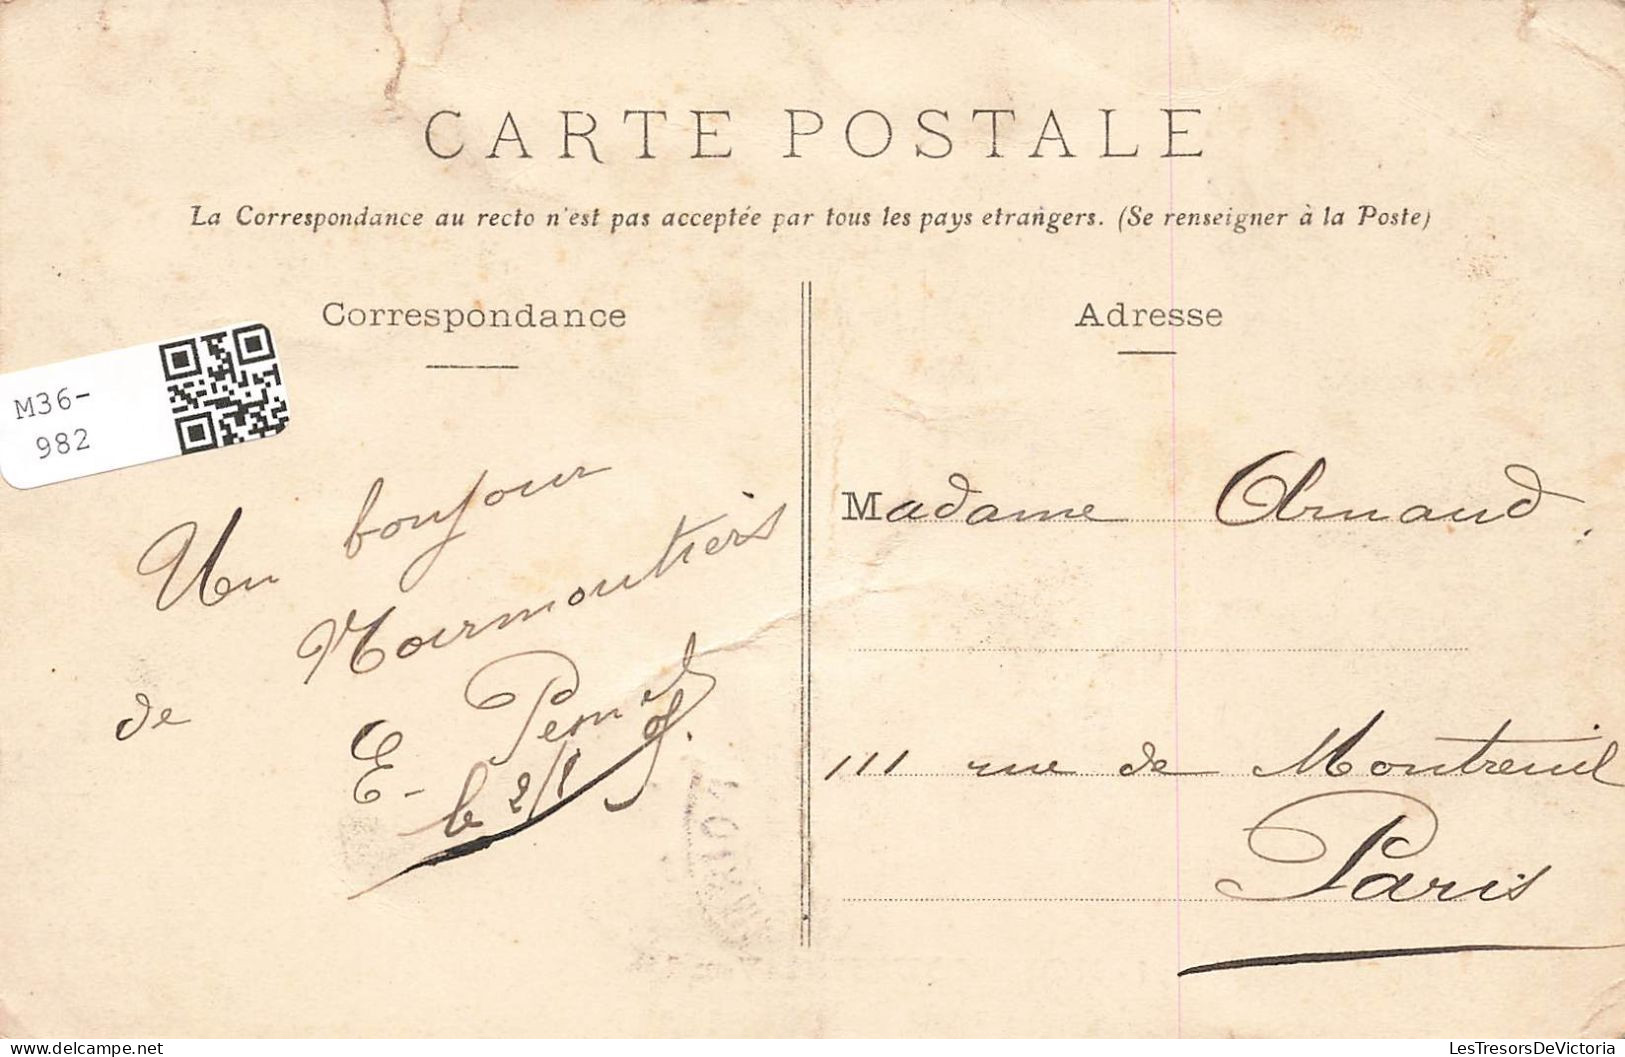 CARTE POSTALE
La Correspondance au recto n'est pas acceptée par tous les pays etrangers. (Se renseigner à la Poste)
Correspondance
M36-
982
Un bonjour
de Mourmoutiers
E-
le 2/1
Adresse
Madame Arnaud.
111 rue de Montreuil
Paris
LesTresorsDeVictoria
www.delcampe.net